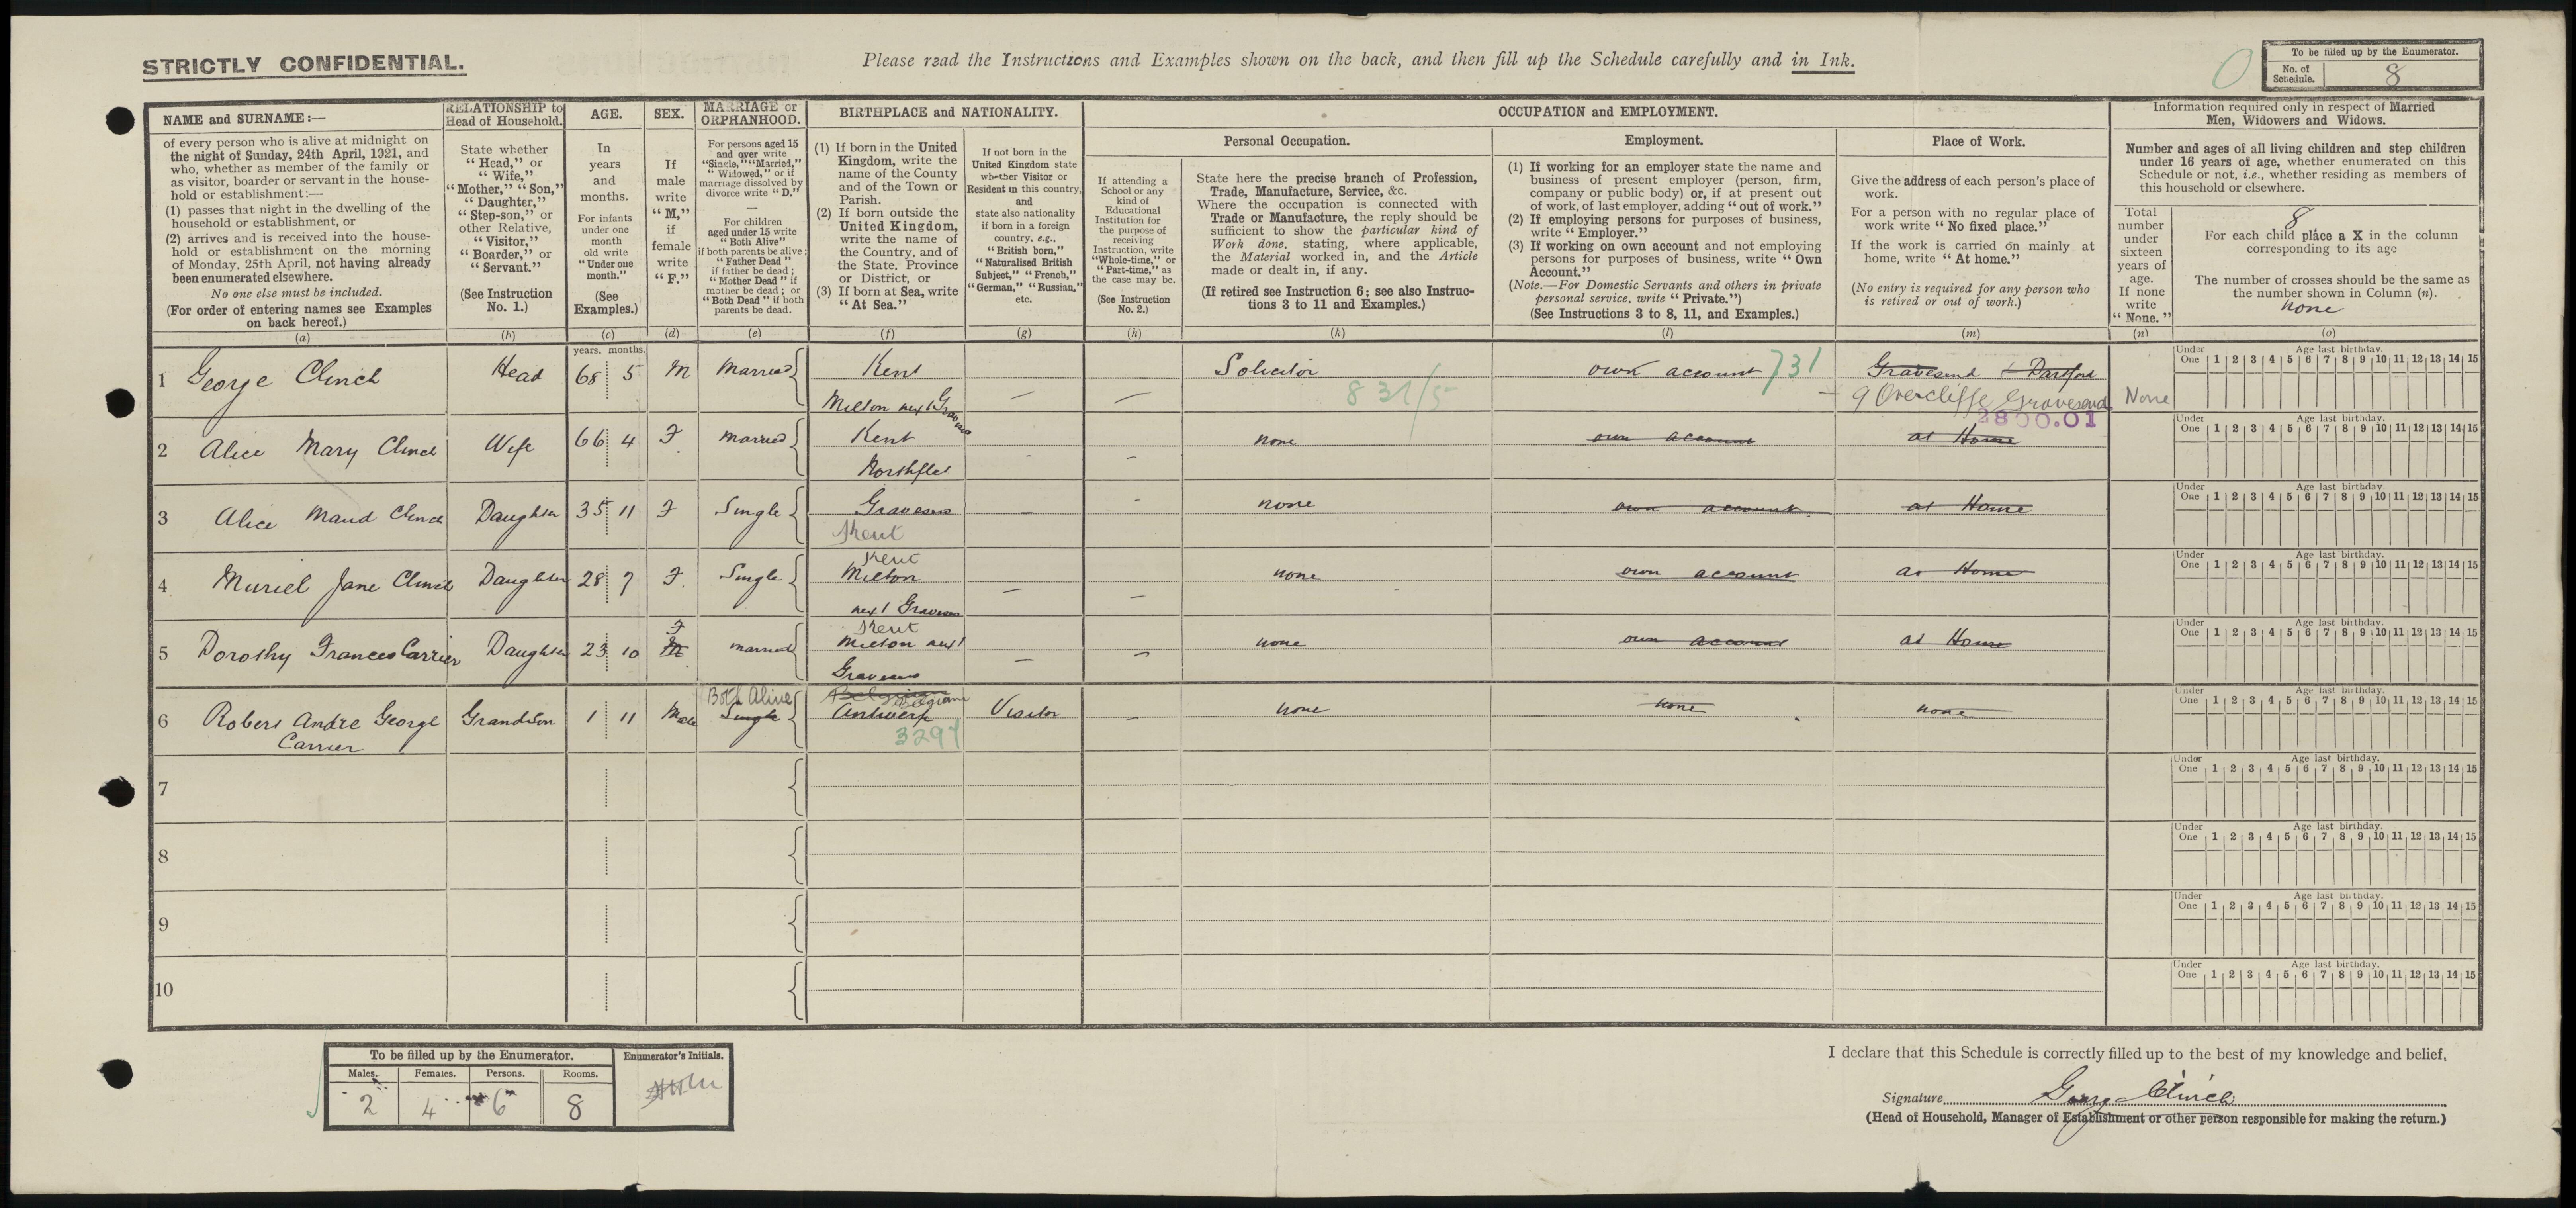 STRICTLY CONFIDENTIAL.
Please read the Instructions and Examples shown on the back, and then fill up the Schedule carefully and in Ink.
To be filled up by the Enumerator.
No. of Schedule. 8
NAME and SURNAME:—
of every person who is alive at midnight on
the night of Sunday, 24th April, 1921, and
who, whether as member of the family or
as visitor, boarder or servant in the house-
hold or establishment:—
(1) passes that night in the dwelling of the
household or establishment, or
(2) arrives and is received into the house-
hold or establishment on the morning
of Monday, 25th April, not having already
been enumerated elsewhere.
No one else must be included.
(For order of entering names see Examples
on back hereof.)
(a)
RELATIONSHIP to
Head of Household.
State whether
"Head," or
"Wife,"
"Mother," "Son,"
"Daughter,"
"Step-son," or
other Relative,
"Visitor,"
"Boarder," or
"Servant."
(See Instruction
No. 1.)
(b)
AGE.
In
years
and
months.
For infants
under one
month
old write
"Under one
month."
(See
Examples.)
(c)
SEX.
If
male
write
"M,"
if
female
write
"F."
(d)
MARRIAGE or
ORPHANHOOD.
For persons aged 15
and over write
"Single," "Married,"
"Widowed," or if
marriage dissolved by
divorce write "D."
—
For children
aged under 15 write
"Both Alive"
if both parents be alive;
"Father Dead"
if father be dead;
"Mother Dead" if
mother be dead; or
"Both Dead" if both
parents be dead.
(e)
BIRTHPLACE and NATIONALITY.
(1) If born in the United
Kingdom, write the
name of the County
and of the Town or
Parish.
(2) If born outside the
United Kingdom,
write the name of
the Country, and of
the State, Province
or District, or
(3) If born at Sea, write
"At Sea."
(f)
If not born in the
United Kingdom state
whether Visitor or
Resident in this country,
and
state also nationality
if born in a foreign
country, e.g.,
"British born,"
"Naturalised British
Subject," "French,"
"German," "Russian,"
etc.
(g)
OCCUPATION and EMPLOYMENT.
If attending a
School or any
kind of
Educational
Institution for
the purpose of
receiving
Instruction, write
"Whole-time," or
"Part-time," as
the case may be.
(See Instruction
No. 2.)
(h)
Personal Occupation.
State here the precise branch of Profession,
Trade, Manufacture, Service, &c.
Where the occupation is connected with
Trade or Manufacture, the reply should be
sufficient to show the particular kind of
Work done, stating, where applicable,
the Material worked in, and the Article
made or dealt in, if any.
(If retired see Instruction 6; see also Instruc-
tions 3 to 11 and Examples.)
(k)
Employment.
(1) If working for an employer state the name and
business of present employer (person, firm,
company or public body) or, if at present out
of work, of last employer, adding "out of work."
(2) If employing persons for purposes of business,
write "Employer."
(3) If working on own account and not employing
persons for purposes of business, write "Own
Account."
(Note.—For Domestic Servants and others in private
personal service, write "Private.")
(See Instructions 3 to 8, 11, and Examples.)
(l)
Place of Work.
Give the address of each person's place of
work.
For a person with no regular place of
work write "No fixed place."
If the work is carried on mainly at
home, write "At home."
(No entry is required for any person who
is retired or out of work.)
(m)
Information required only in respect of Married
Men, Widowers and Widows.
Number and ages of all living children and step children
under 16 years of age, whether enumerated on this
Schedule or not, i.e., whether residing as members of
this household or elsewhere.
Total
number
under
sixteen
years of
age.
If none
write
"None."
(n)
8
For each child place a X in the column
corresponding to its age
The number of crosses should be the same as
the number shown in Column (n).
none
(o)
years. months.
Under One Age last birthday. 1 2 3 4 5 6 7 8 9 10 11 12 13 14 15
1 George Clinch Head 68 5 M Married Kent Solicitor own account 731 Gravesend + Dartford
Milton next Gravesend — — 831/5 9 Overcliffe Gravesend None
2800.01
Under One Age last birthday. 1 2 3 4 5 6 7 8 9 10 11 12 13 14 15
2 Alice Mary Clinch Wife 66 4 F married Kent none own account at Home
Northfleet - —
Under One Age last birthday. 1 2 3 4 5 6 7 8 9 10 11 12 13 14 15
3 Alice Maud Clinch Daughter 35 11 F Single Gravesend — - none own account at Home
Kent
Under One Age last birthday. 1 2 3 4 5 6 7 8 9 10 11 12 13 14 15
Kent
4 Muriel Jane Clinch Daughter 28 7 F. Single Milton none own account at Home
next Gravesend — —
Under One Age last birthday. 1 2 3 4 5 6 7 8 9 10 11 12 13 14 15
F Kent
5 Dorothy Frances Carrier Daughter 23 10 M married Milton next none own account at Home
Gravesend — —
Under One Age last birthday. 1 2 3 4 5 6 7 8 9 10 11 12 13 14 15
Both Alive Belgium
6 Robert Andre George Grandson 1 11 Male Single Antwerp Visitor — none none none
Carrier 3297
Under One Age last birthday. 1 2 3 4 5 6 7 8 9 10 11 12 13 14 15
7
Under One Age last birthday. 1 2 3 4 5 6 7 8 9 10 11 12 13 14 15
8
Under One Age last birthday. 1 2 3 4 5 6 7 8 9 10 11 12 13 14 15
9
Under One Age last birthday. 1 2 3 4 5 6 7 8 9 10 11 12 13 14 15
10
To be filled up by the Enumerator.
Males. Females. Persons. Rooms.
2 4 6 8
Enumerator's Initials.
I declare that this Schedule is correctly filled up to the best of my knowledge and belief,
Signature George Clinch
(Head of Household, Manager of Establishment or other person responsible for making the return.)